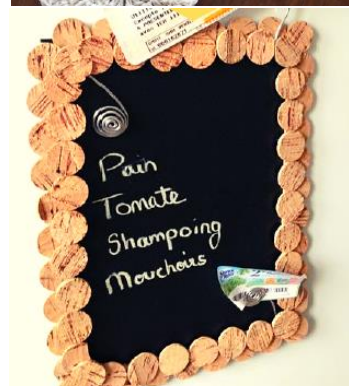 Pain
Tomate
Shampoing
Mouchoirs